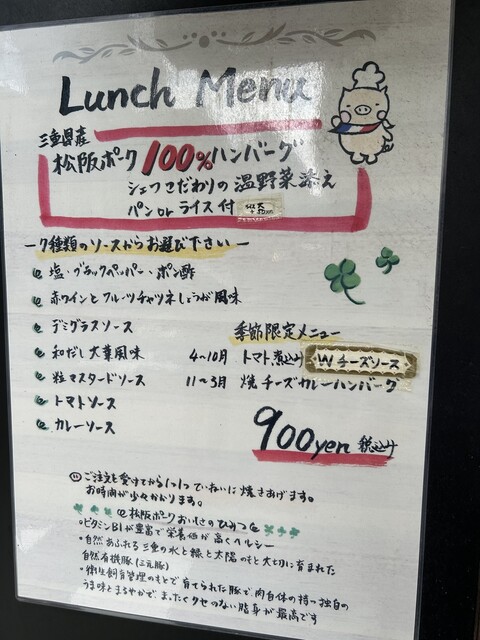 Lunch Menu
三重県産
松阪ポーク100%ハンバーグ
シェフこだわりの温野菜添え
パン or ライス付
ー7種類のソースからお選び下さいー
塩・ブラックペッパー・ポン酢
赤ワインとフルーツチャツネしょうが風味
デミグラスソース
和だし大葉風味
粒マスタードソース
トマトソース
カレーソース
季節限定メニュー
4〜10月 トマト煮込み Wチーズソース
11〜3月 焼チーズカレーハンバーグ
900yen 税込み
ご注文を受けてから1つ1つていねいに焼きあげます。
お時間が少々かかります。
松阪ポークおいしさのひみつ
・ビタミンB1が豊富で栄養価が高くヘルシー
・自然あふれる三重の水と緑と太陽のもと大切に育まれた
自然有機豚(三元豚)
・衛生飼育管理のもとで育てられた豚で肉自体の持つ独自の
うま味とまろやかで、まったくクセのない脂身が最高です